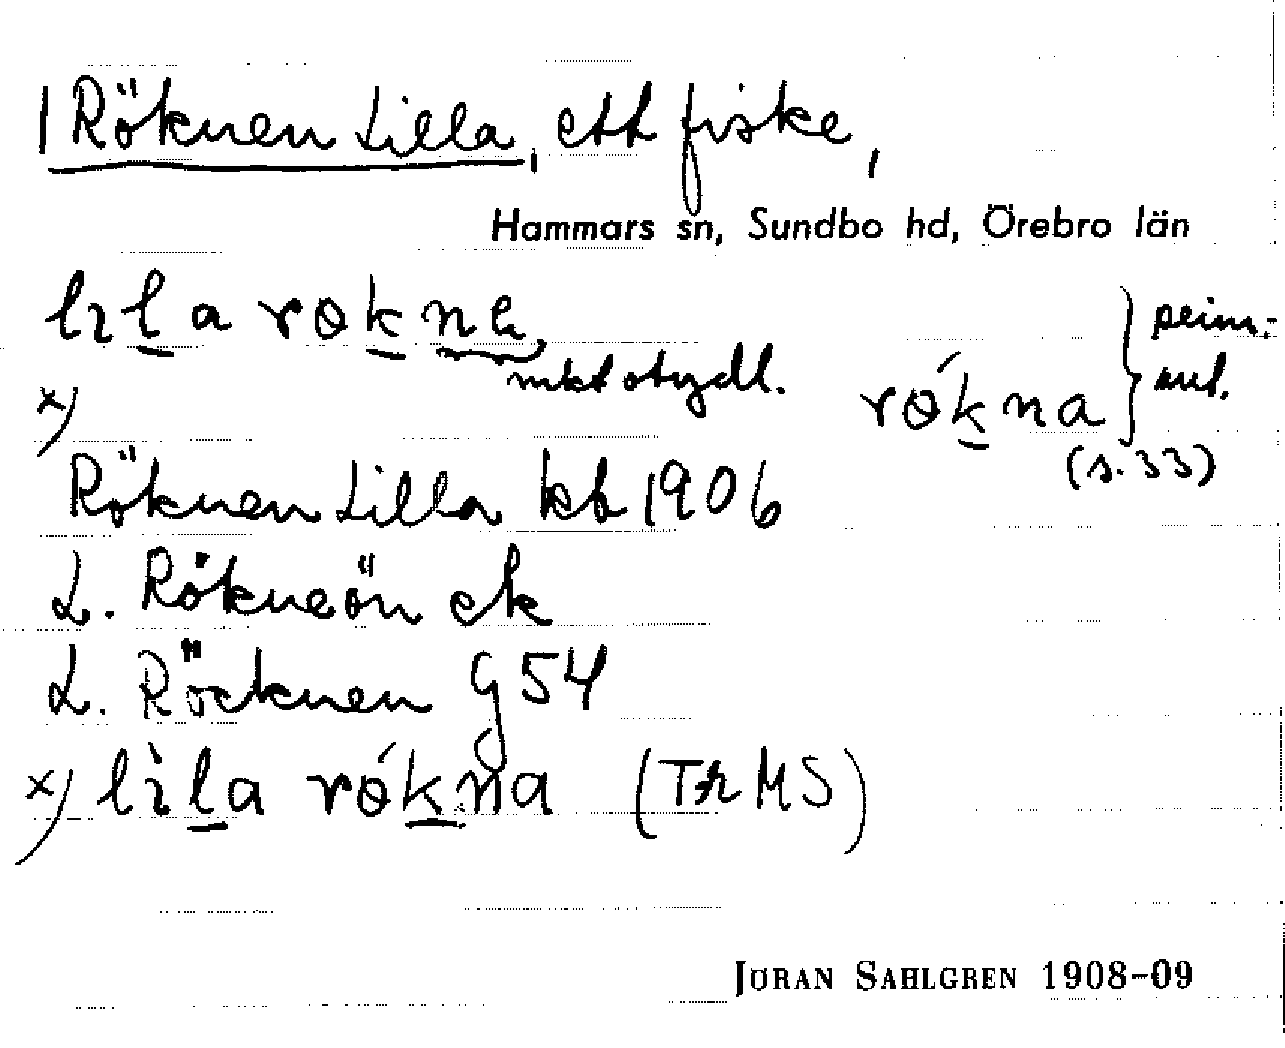 1 Röknen Lilla, ett fiske,
Hammars sn, Sundbo hd, Örebro län
lıla røkne
mkt otydl.
x)
røḱna
(s. 33)
Röknen Lilla kb 1906
L. Rökneön ek
L. Röcknen G 54
x) lìla røḱna (Tr MS)
JÖRAN SAHLGREN 1908-09